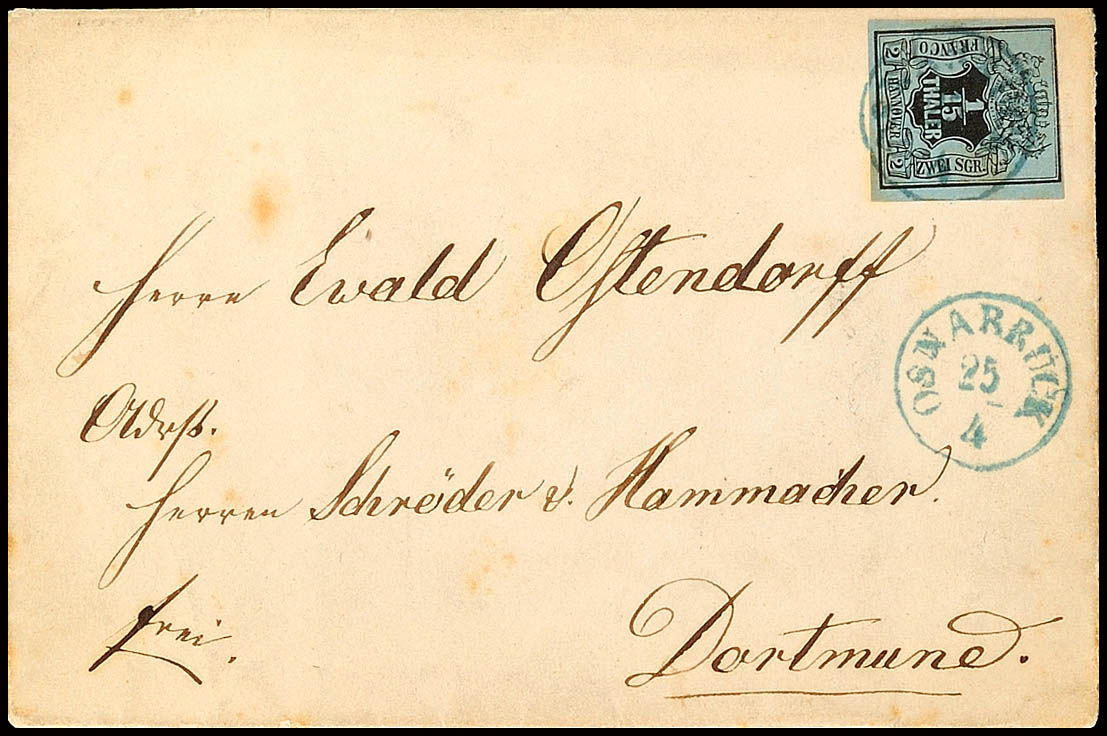 FRANCO
2 HANNOVER 2
1
15
THALER
ZWEI SGR.
Herrn Ewald Ostendorff
OSNABRÜCK
25
4
Adrß.
Herren Schröder &. Hammacher.
frei.
Dortmund.